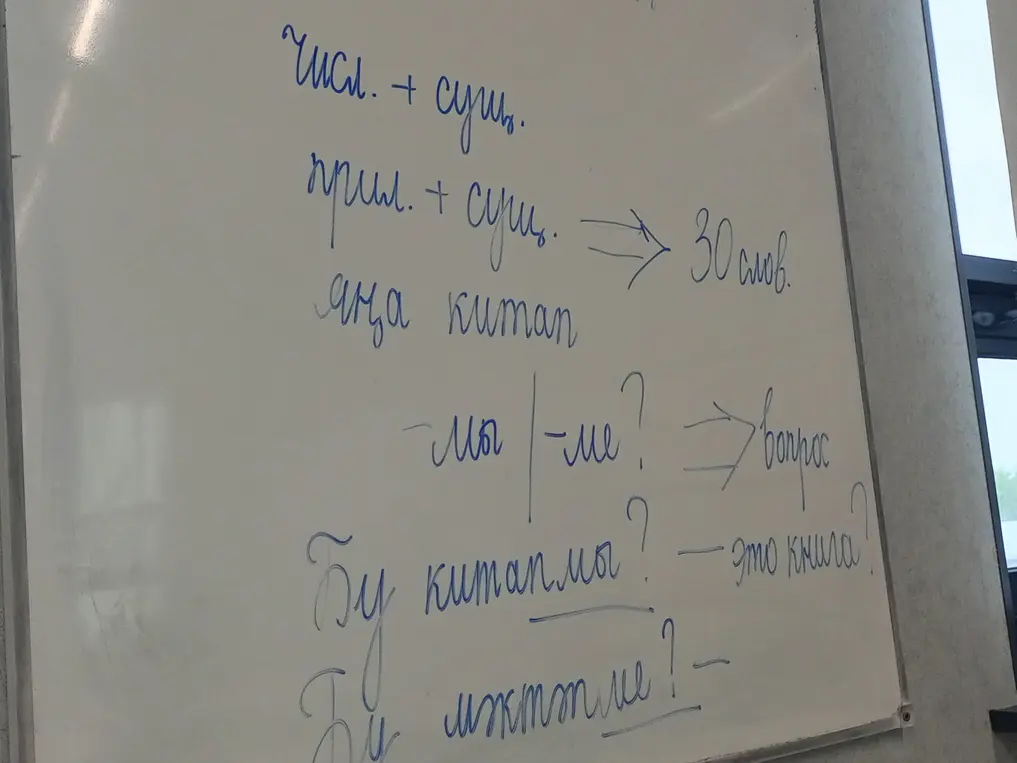 Числ. + сущ.
прил. + сущ. ⇒ 30 слов.
яңа китап
-мы | -ме? ⇒ вопрос
Бу китапмы? — это книга?
Бу мәктәпме? —